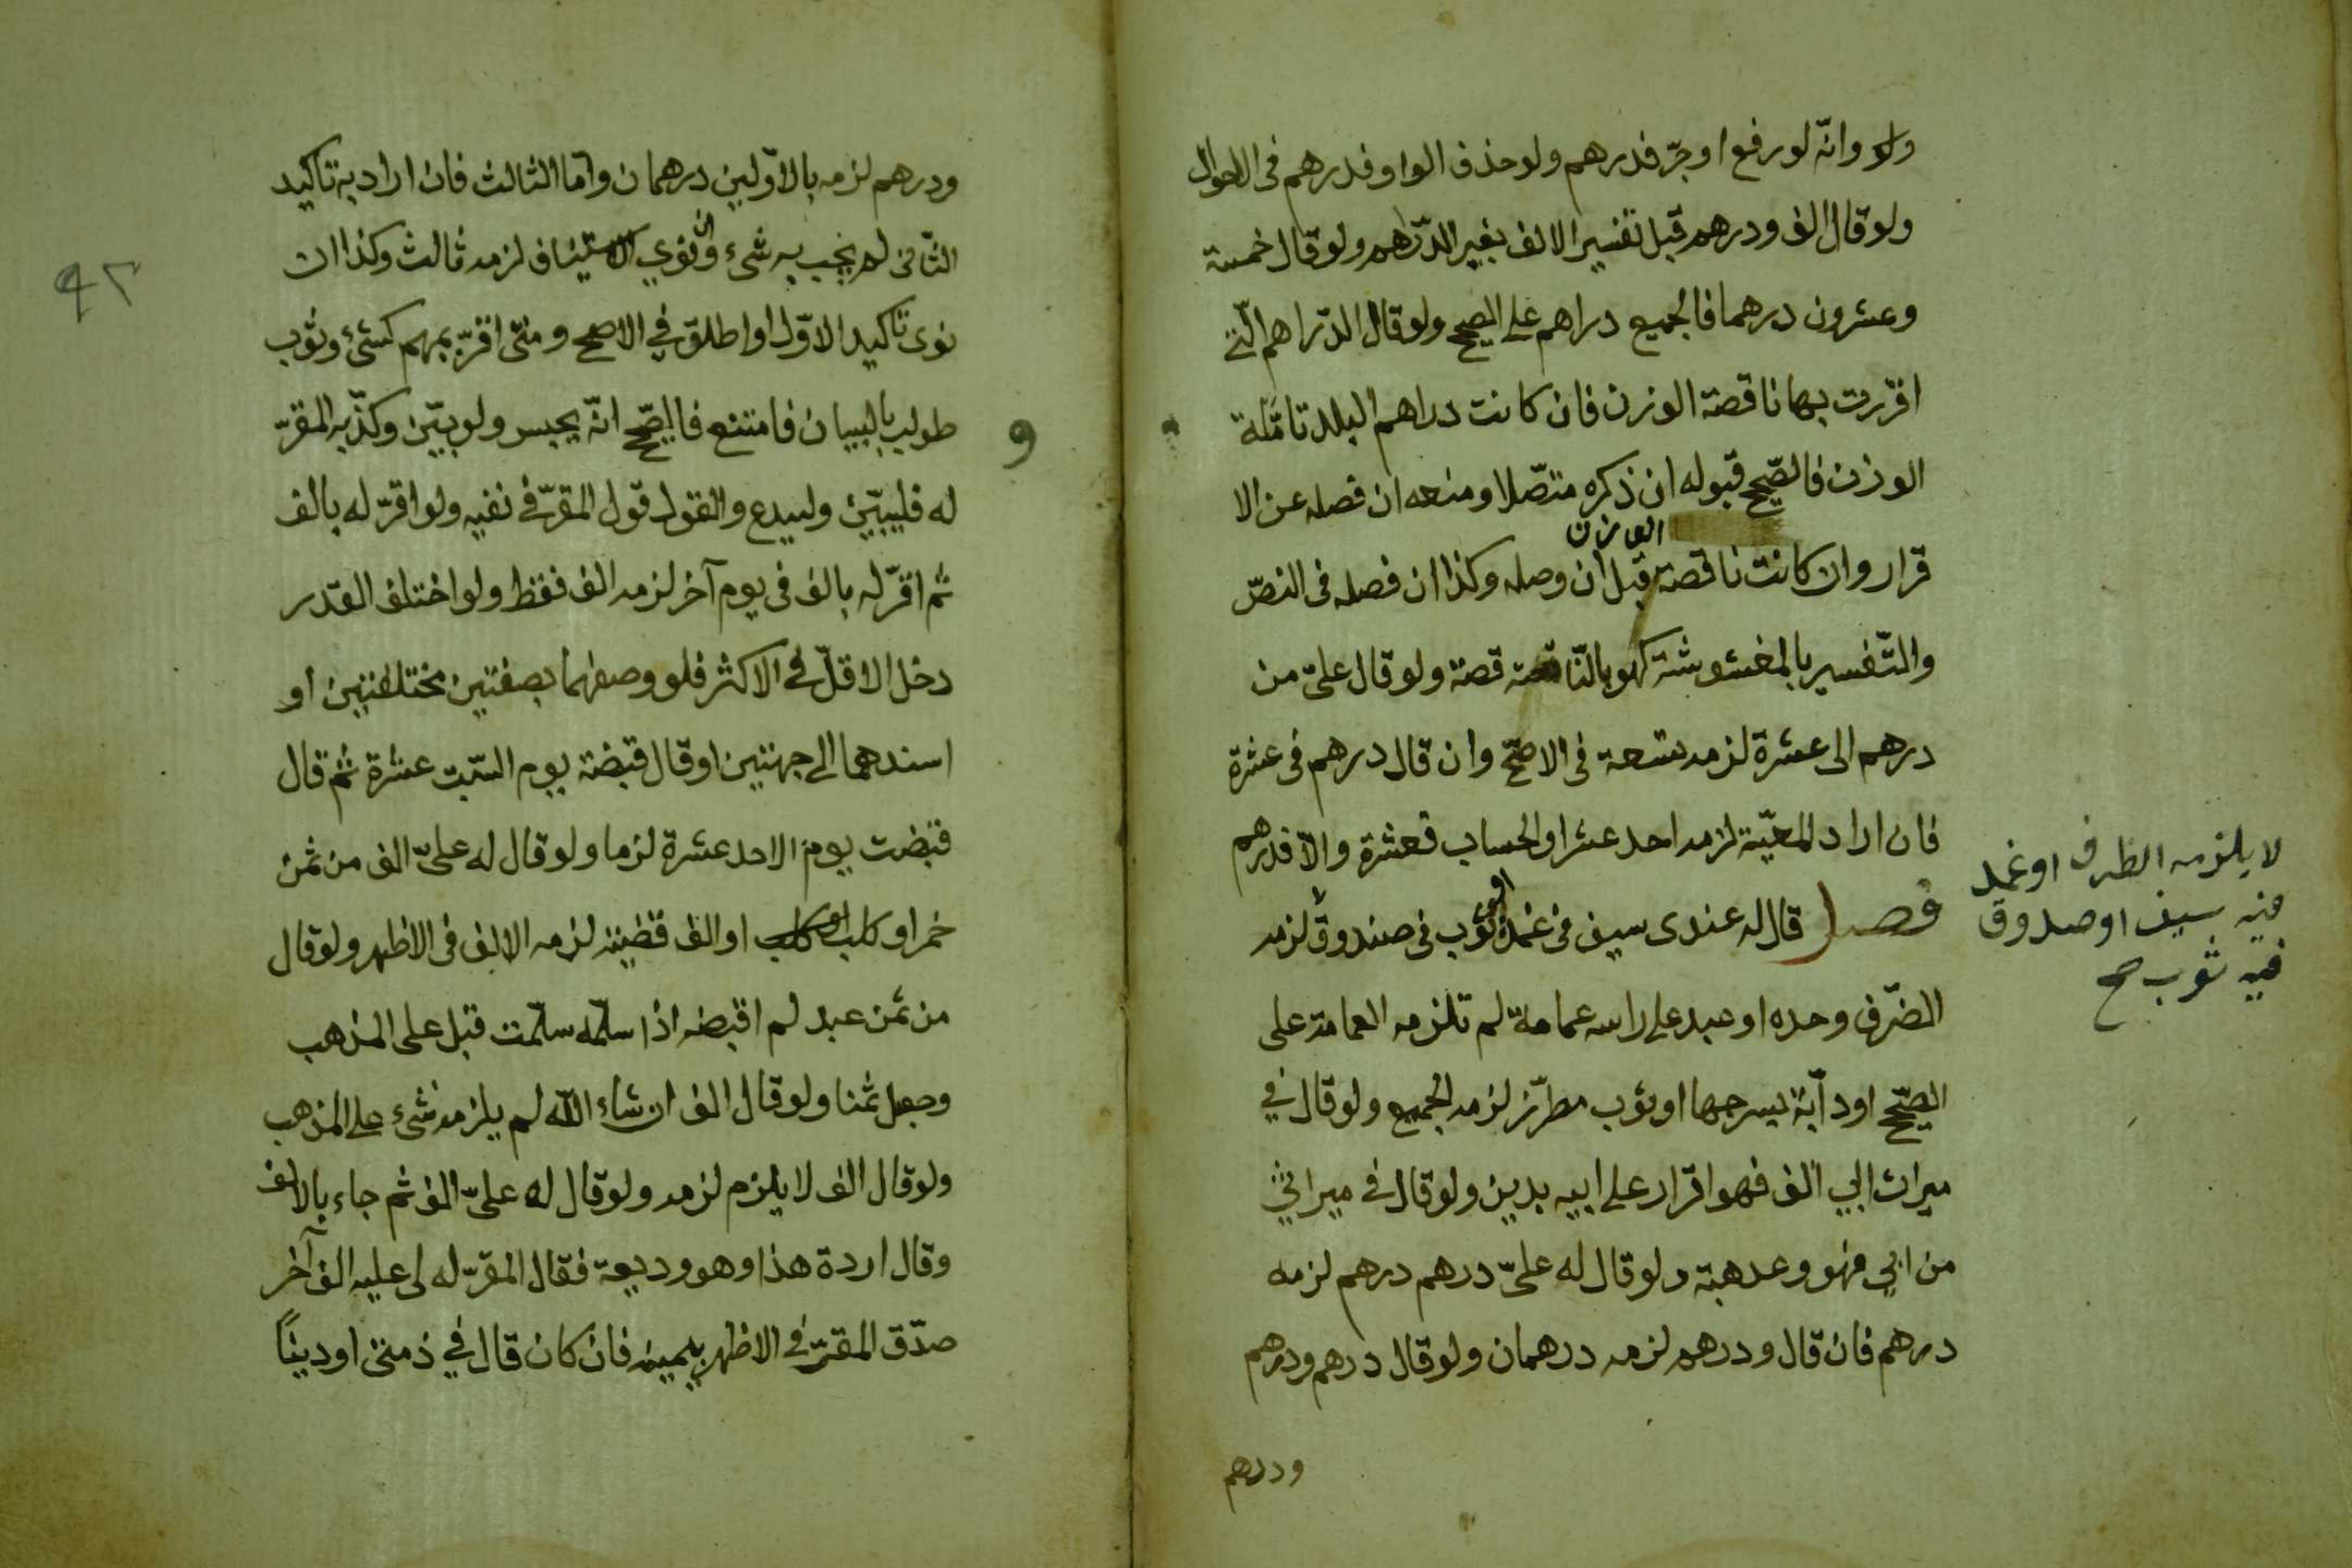 ولو وانّه لو رفع او جرّ فدرهم ولو حذف الواو فدرهم فى الاحوال
ولو قال الف ودرهم قبل تفسير الالف بغير الدّراهم ولو قال خمسة
وعشرون درهما فالجميع دراهم على الصحيح ولو قال الدّراهم الّتى
اقررت بها ناقصة الوزن فان كانت دراهم البلد تامّلة
الوزن فالصّحيح قبوله ان ذكره متصّلا ومنعه ان فصله عن الا
قرار وان كانت ناقصة الوزن قبل ان وصله وكذا ان فصله فى النصّ
والتّفسير بالمغشوشة كهو بالنّاقصة قصة ولو قال علىّ من
درهم الى عشرة لزمه تسعة فى الاصحّ وان قال درهم فى عشرة
فان اراد المعيّة لزمه احد عشر او الحساب فعشرة والاّ فدرهم
فصل قال له عندى سيف فى غمد او ثوب فى صندوق لزمه
لا يلزمه الظرف او غمد
فيه سيف او صندوق
فيه ثوب صح
الضّرف وحده او عبد على راسه عمامة لم تلزمه العمامة على
الصّحيح او دآبّة بسرجها او ثوب مطرّز لزمه الجميع ولو قال فى
ميراث ابي الف فهو اقرار على ابيه بدين ولو قال فى ميراثي
من ابي فهو وعد هبة ولو قال له علىّ درهم درهم لزمه
درهم فان قال ودرهم لزمه درهمان ولو قال درهم ودرهم
ودرهم
٩٢
ودرهم لزمه بالاوّلين درهمان وامّا الثالث فان اراد به تاكيد
الثّانى لم يجب به شىء وان نوي الاستيناف لزمه ثالث وكذا ان
نوى تاكيد الاوّل او اطلق في الاصح ومتى اقرّ بمبهم كشئ وثوب
طولب بالبيان فامتنع فالصّحيح انّه يحبس ولو بيّن وكذّبه المقرّ
و
له فليبيّن وليدع والقول قول المقرّ فى نفيه ولو اقرّ له بالف
ثم اقرّ له بالف فى يوم آخر لزمه الف فقط ولو اختلف القدر
دخل الاقلّ فى الاكثر فلو وصفهما بصفتين مختلفتين او
اسندهما الى جهتين او قال قبضة يوم السّبت عشرة ثم قال
قبضت يوم الاحد عشرة لزما ولو قال له علىّ الف من ثمن
خمر او كلب او الف قضيته لزمه الالف فى الاظهر ولو قال
من ثمن عبد لم اقبضه اذا سلّمه سلّمت قبل على المذهب
وجعل ثمنا ولو قال الف ان شاء الله لم يلزمه شىء على المذهب
ولو قال الف لا يلزم لزمه ولو قال له علىّ الف ثم جاء بالالف
وقال اردة هذا وهو وديعة فقال المقرّ له لى عليه الف آخر
صدّق المقرّ فى الاظهر بيمينه فان كان قال في ذمتى او دينًا